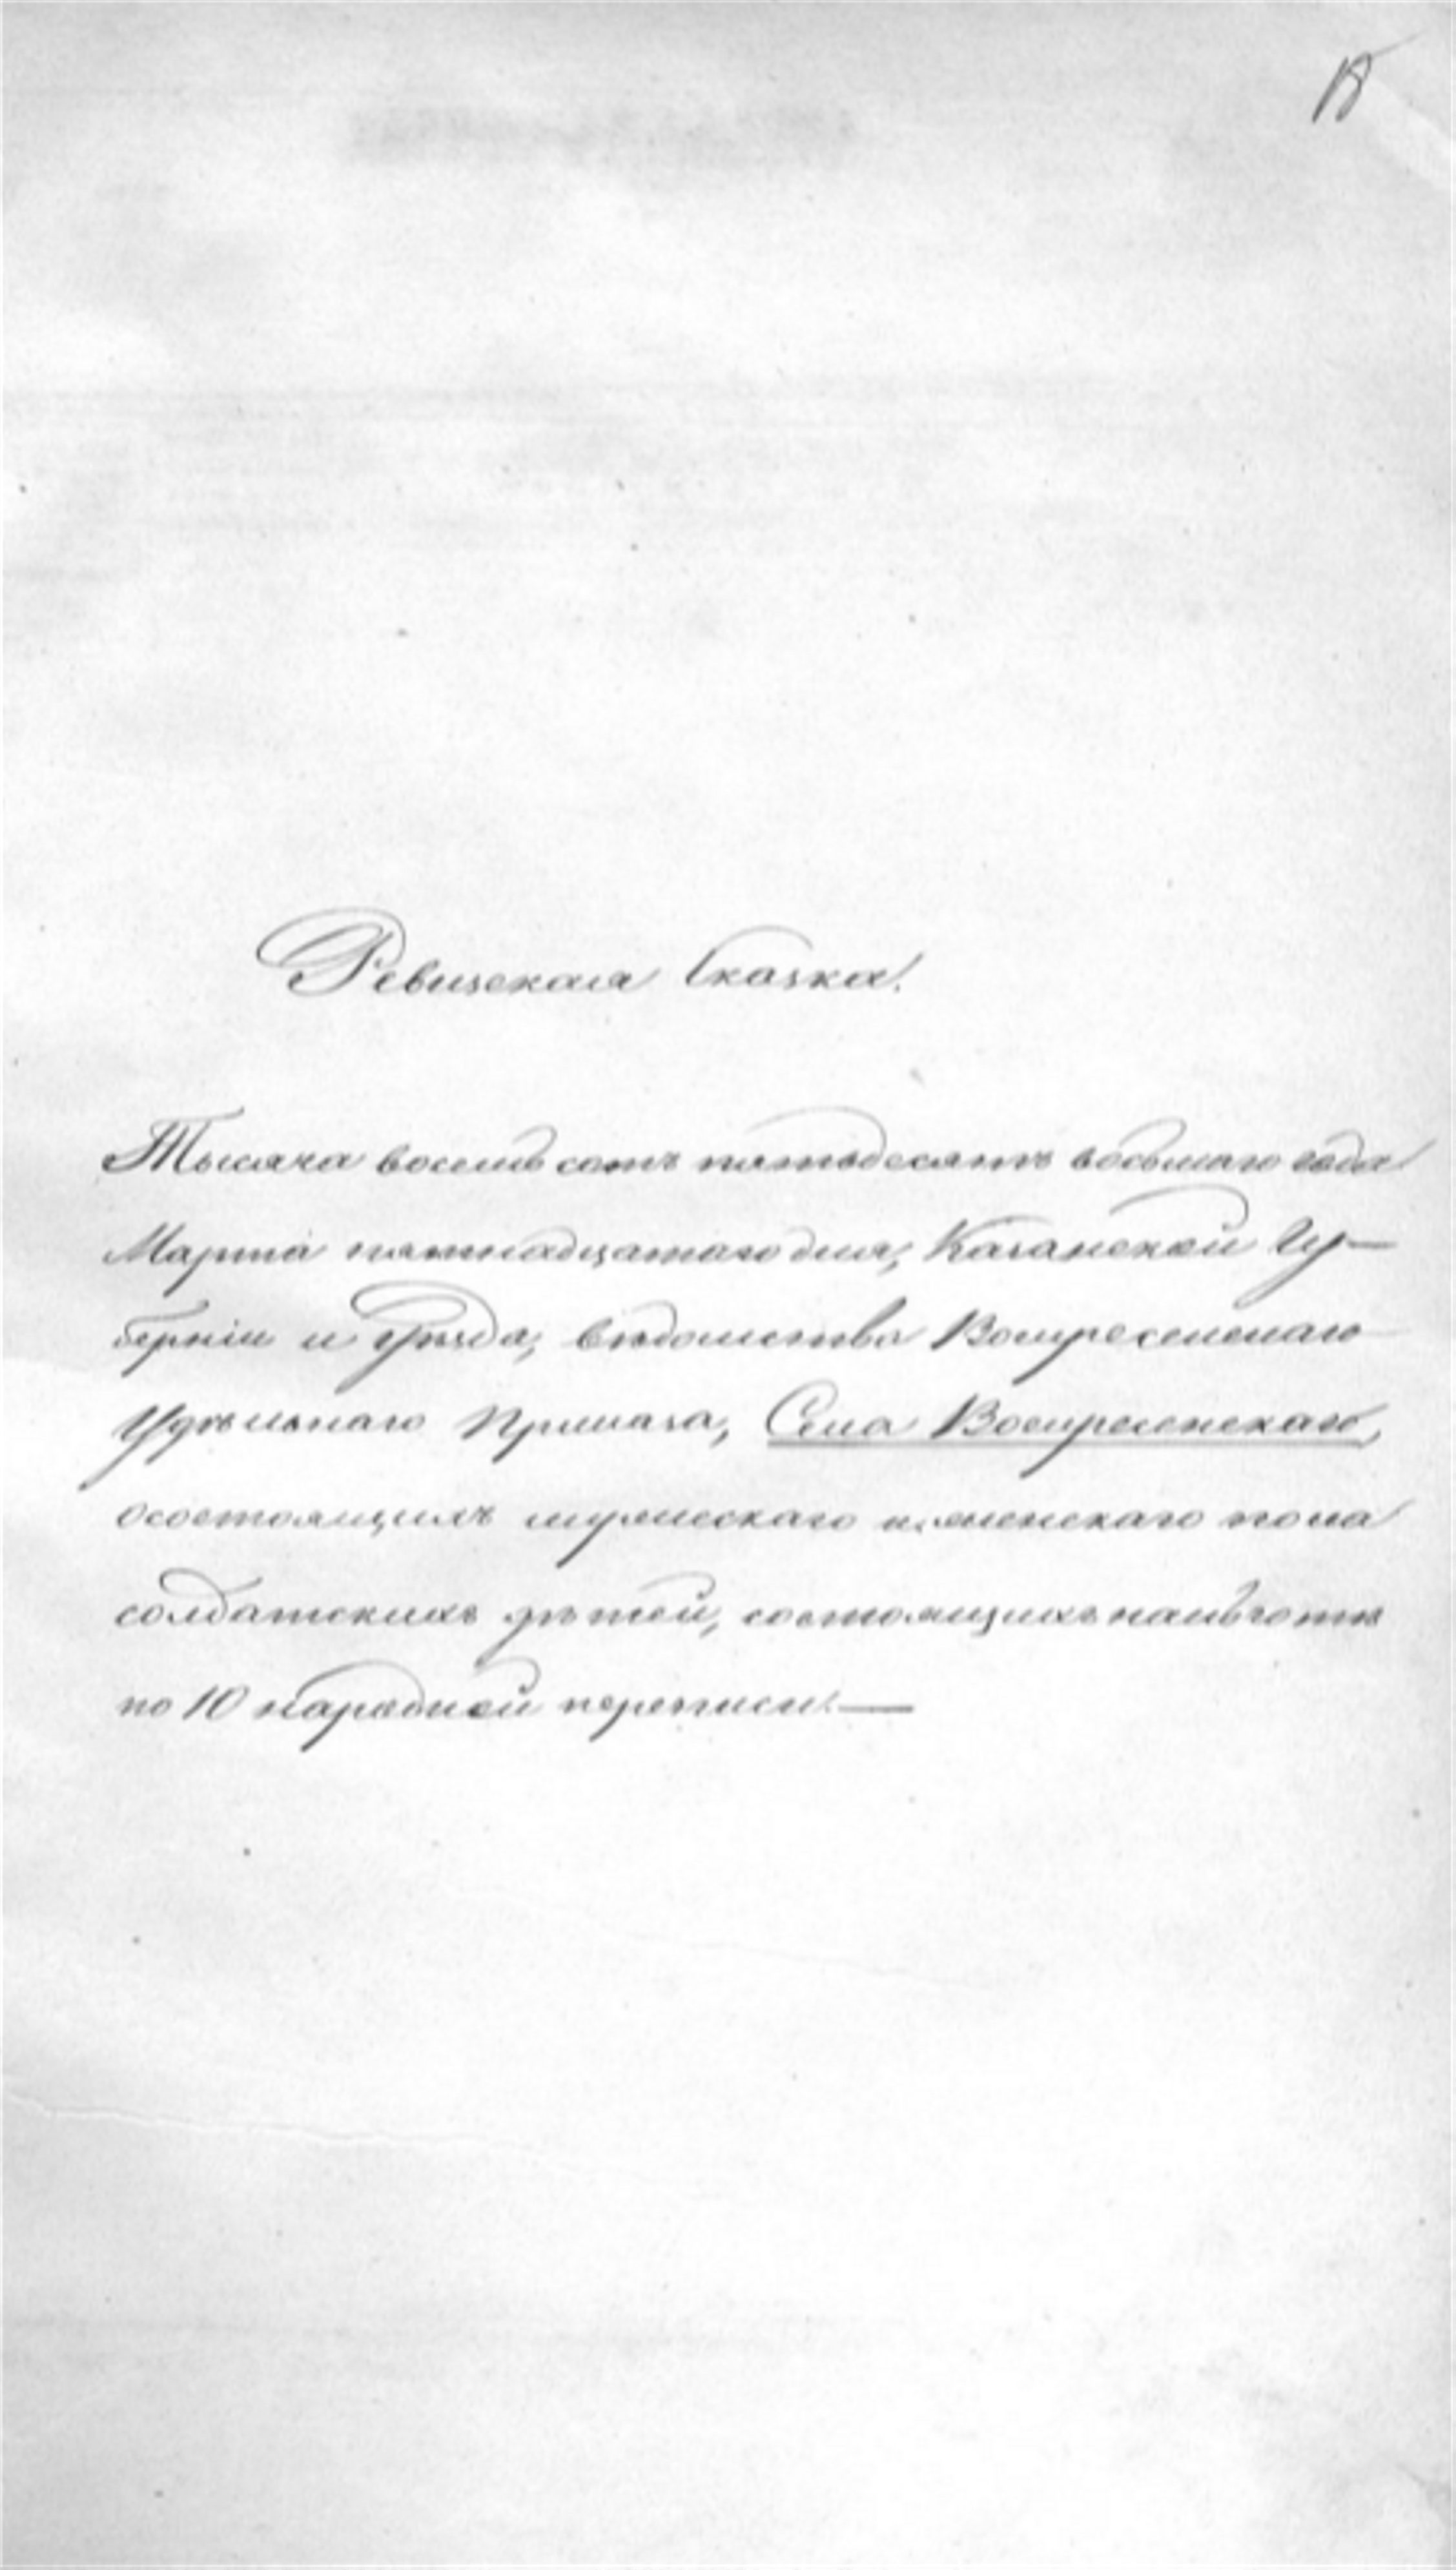 Ревизская Сказка.
Тысяча восемь сотъ пятьдесятъ восьмаго года
Марта пятнадцатаго дня, Казанской Гу-
берніи и Уѣзда, вѣдомства Воскресенскаго
Удѣльнаго Приказа, Села Воскресенскаго,
осостоящихъ мужескаго и женскаго пола
солдатскихъ дѣтей, состоящихъ
по 10 народной переписи. —